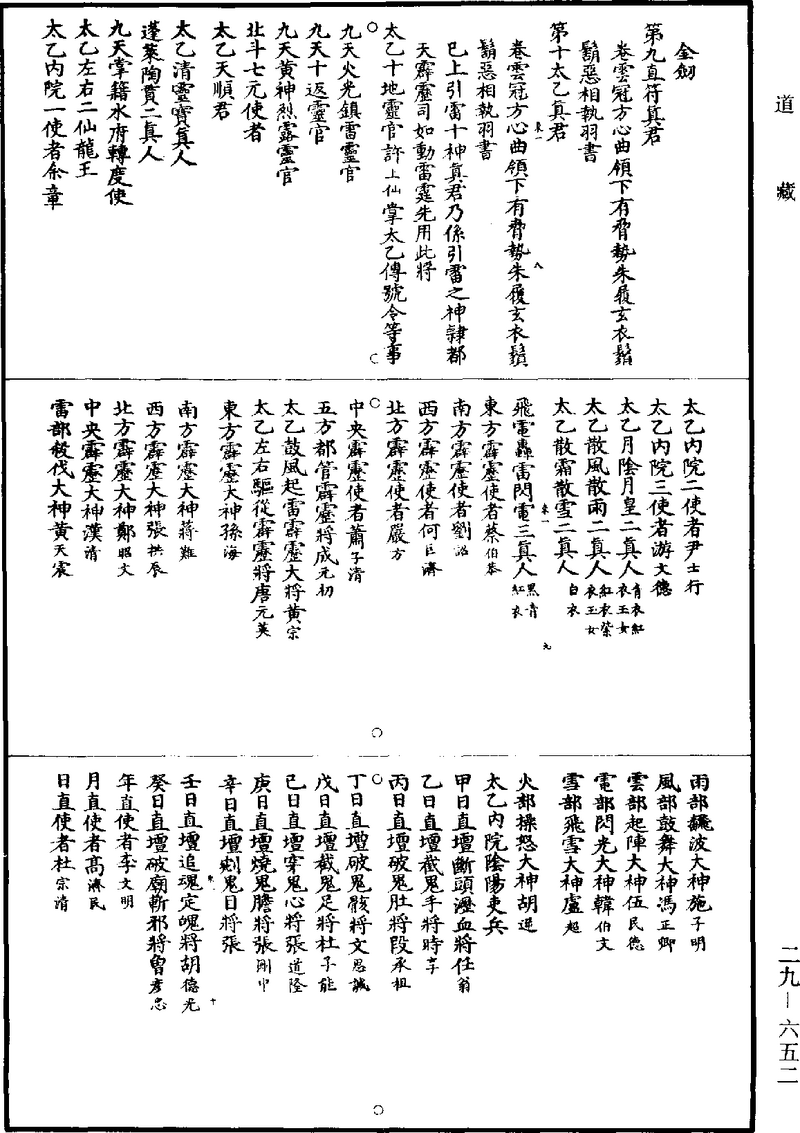 道藏
金劒
第九直符真君
卷雲冠方心曲領下有脅勢朱履玄衣鬚
鬍惡相執羽書
第十太乙真君
卷雲冠方心曲領下有脅勢朱履玄衣鬚
鬍惡相執羽書
已上引雷十神真君乃係引雷之神隷都
天霹靂司如動雷霆先用此將
太乙十地靈官許上仙掌太乙傳號令等事
九天火光鎮雷靈官
九天十返靈官
九天黃神烈露靈官
北斗七元使者
太乙天順君
太乙清靈寶真人
蓬萊陶賈二真人
九天掌籍水府轉度使
太乙左右二仙龍王
太乙內院一使者余章
太乙內院二使者尹士行
太乙內院三使者游文德
太乙月陰月皇二真人青衣紅衣玉女
太乙散風散雨二真人紅衣紫衣玉女
太乙散霜散雪二真人白衣
飛電轟雷閃電三真人黑青紅衣
東方霹靂使者蔡伯恭
南方霹靂使者劉詔
西方霹靂使者何巨濟
北方霹靂使者嚴方
中央霹靂使者蕭子清
五方都管霹靂將成元初
太乙鼓風起雷霹靂大將黃宗
太乙左右驅從霹靂將唐元英
東方霹靂大神孫海
南方霹靂大神蔣難
西方霹靂大神張拱辰
北方霹靂大神鄭昭文
中央霹靂大神漢清
雷部殺伐大神黃天震
雨部飜波大神施子明
風部鼓舞大神馮正卿
雲部起陣大神伍民德
電部閃光大神韓伯文
雪部飛雪大神盧起
火部操怒大神胡進
太乙內院陰陽吏兵
甲日直壇斷頭瀝血將任翁
乙日直壇截鬼手將時享
丙日直壇破鬼肚將段承祖
丁日直壇破鬼骸將文思誠
戊日直壇截鬼足將杜子能
己日直壇穿鬼心將張道隆
庚日直壇燒鬼膽將張剛中
辛日直壇剜鬼目將張
壬日直壇追魂定魄將胡德光
癸日直壇破廟斬邪將曾彥忠
年直使者李文明
月直使者高濟民
日直使者杜宗清
二九—六五二